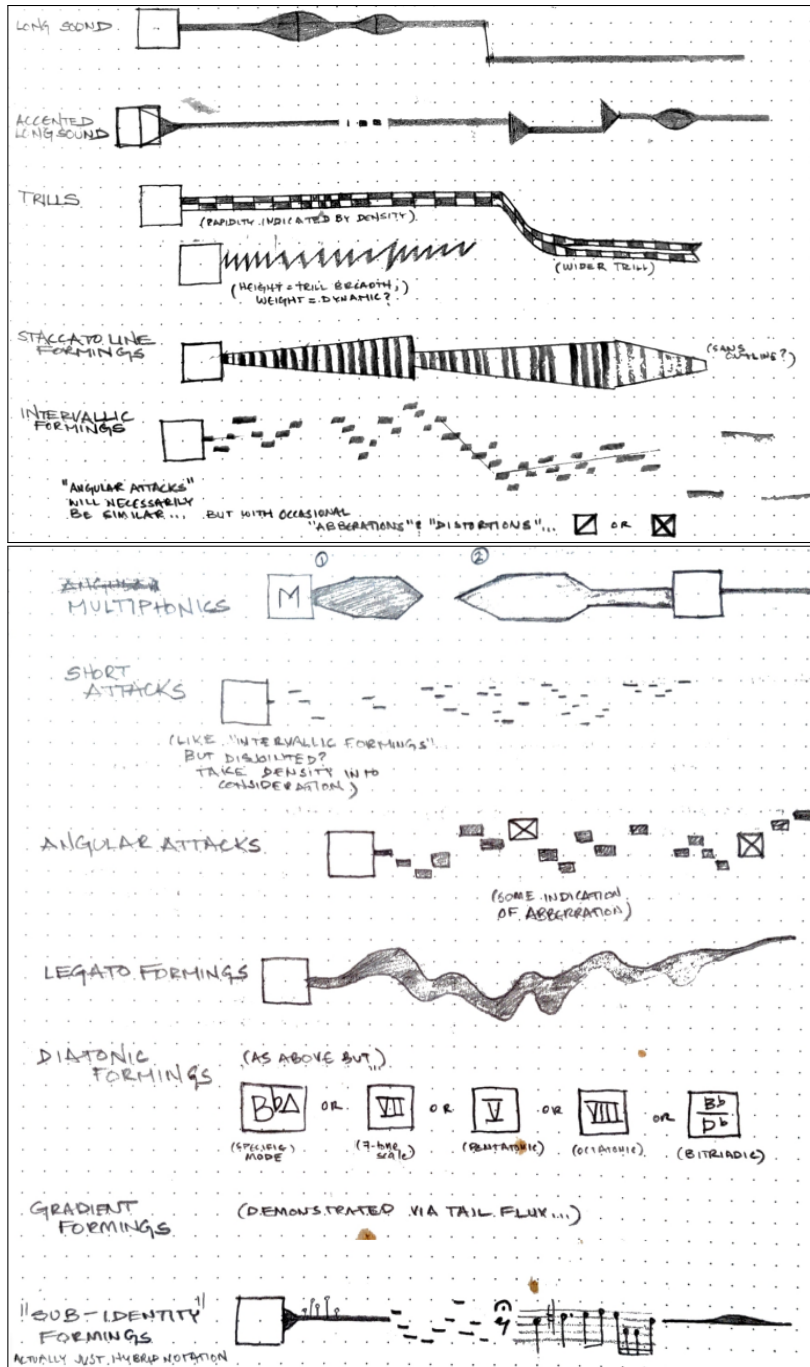 LONG SOUND
ACCENTED
LONG SOUND
TRILLS
(RAPIDITY INDICATED BY DENSITY)
(WIDER TRILL)
(HEIGHT = TRILL BREADTH;
WEIGHT = DYNAMIC?
STACCATO LINE
FORMINGS
(SANS
OUTLINE?)
INTERVALLIC
FORMINGS
"ANGULAR ATTACKS"
WILL NECESSARILY
BE SIMILAR... BUT WITH OCCASIONAL
"ABBERATIONS" & "DISTORTIONS"... OR
ANGULAR
MULTIPHONICS
M
1
2
SHORT
ATTACKS
(LIKE "INTERVALLIC FORMINGS"
BUT DISJOINTED?
TAKE DENSITY INTO
CONSIDERATION)
ANGULAR ATTACKS
(SOME INDICATION
OF ABBERRATION)
LEGATO FORMINGS
DIATONIC
FORMINGS
(AS ABOVE BUT)
B♭Δ OR VII OR V OR VIII OR B♭/D♭
(SPECIFIC
MODE
(7-tone
scale)
(PENTATONIC)
(OCTATONIC)
(BITRIADIC)
GRADIENT
FORMINGS
(DEMONSTRATED VIA TAIL FLUX...)
"SUB-IDENTITY"
FORMINGS
ACTUALLY JUST HYBRID NOTATION